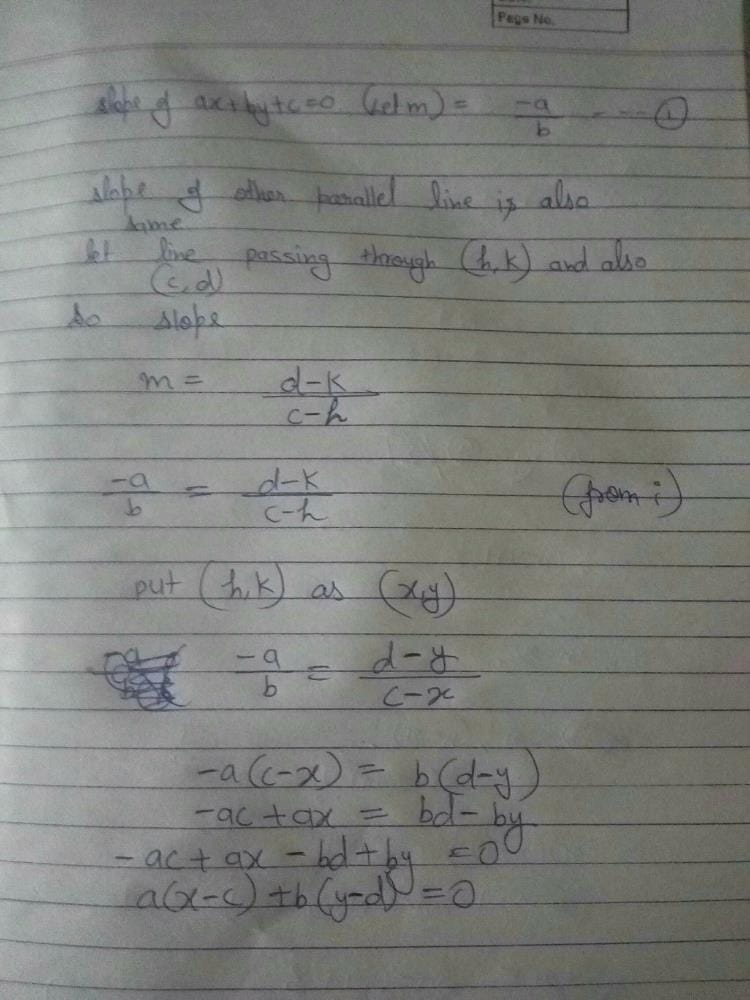 Page No.
slope of ax+by+c=0 (let m) = -a/b ---- (1)
slope of other parallel line is also
same
let line passing through (h,k) and also
(c,d)
So slope
m = d-k/c-h
-a/b = d-k/c-h (from i)
put (h,k) as (x,y)
-a/b = d-y/c-x
-a(c-x) = b(d-y)
-ac+ax = bd-by
-ac+ax-bd+by =0
a(x-c)+b(y-d)=0